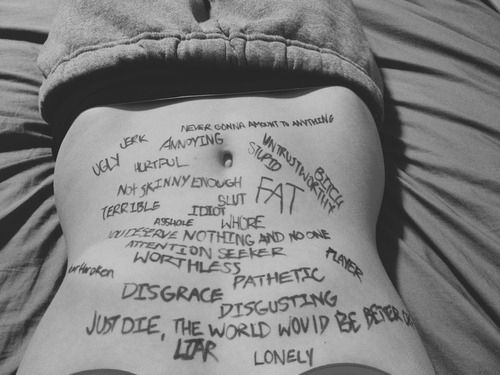 NEVER GONNA AMOUNT TO ANYTHING
JERK
ANNOYING
UNTRUSTWORTHY
UGLY
HURTFUL
STUPID
BITCH
NOT SKINNY ENOUGH
FAT
SLUT
TERRIBLE
IDIOT
ASSHOLE
WHORE
YOU DESERVE NOTHING AND NO ONE
ATTENTION SEEKER
PLAYER
WORTHLESS
PATHETIC
DISGRACE
DISGUSTING
JUST DIE, THE WORLD WOULD BE BETTER
LIAR
LONELY